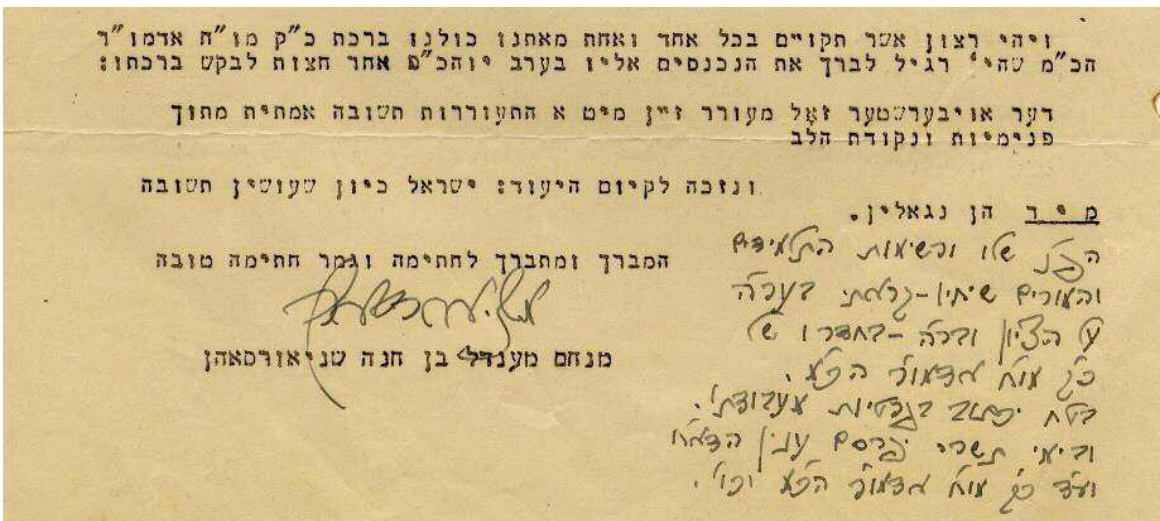 ויהי רצון אשר תקויים בכל אחד ואחת מאתנו כולנו ברכת כ"ק מו"ח אדמו"ר
הכ"מ שהי' רגיל לברך את הנכנסים אליו בערב יוהכ"פ אחר חצות לבקש ברכתו:
דער אויבערשטער זאָל מעורר זיין מיט א התעוררות תשובה אמתית מתוך
פנימיות ונקודת הלב
ונזכה לקיום היעוד: ישראל כיון שעושין תשובה
מ י ד הן נגאלין.
המברך ומתברך לחתימה וגמר חתימה טובה
מנחם מענדל בן חנה שניאורסאהן
הפ"נ שלו ורשימות התלמידים
והמורים שיחיו-
על הציון ובר"ה -בחדרו של
כ"ק מו"ח אדמו"ר הכ"מ.
בטח יכתוב בפרטיות מעבודתו.
ובימי תשרי יפרסם ענין
כ"ק מו"ח אדמו"ר הכ"מ וכו'.